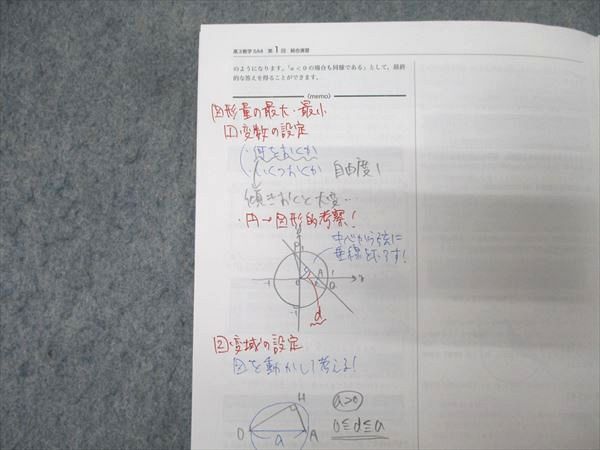 高3数学SA4 第1回 総合演習
のようになります。「a<0の場合も同様である」として、最終
的な答えを得ることができます。
(memo)
図形量の最大・最小
1 変数の設定
・何をおくか
・いくつおくか 自由度1
傾きおくと大変…
・円→図形的考察!
中心から弦に
垂線を下ろす!
P
A
Q
O
1
-1
-1
x
d
2 変域の設定
図を動かして考える!
H
O
a
A
a>0
0≦d≦a